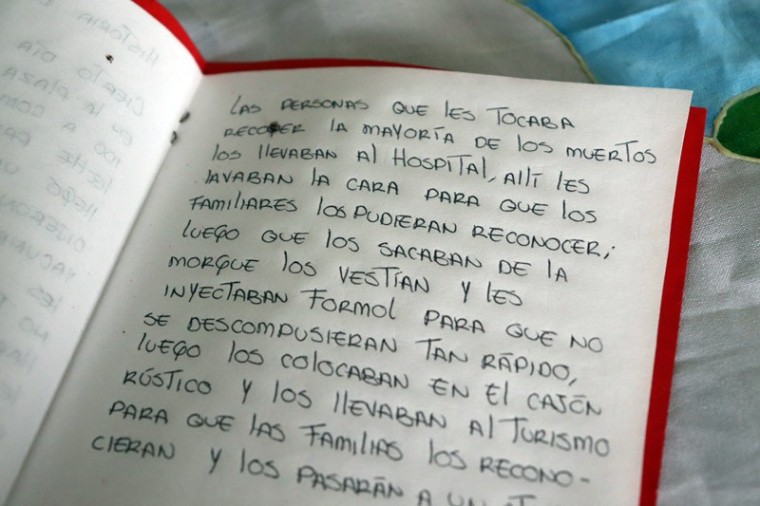 HISTORIA
CIERTO DÍA
LAS PERSONAS QUE LES TOCABA
RECOGER LA MAYORÍA DE LOS MUERTOS
LOS LLEVABAN AL HOSPITAL, ALLÍ LES
LAVABAN LA CARA PARA QUE LOS
FAMILIARES LOS PUDIERAN RECONOCER;
LUEGO QUE LOS SACABAN DE LA
MORGUE LOS VESTÍAN Y LES
INYECTABAN FORMOL PARA QUE NO
SE DESCOMPUSIERAN TAN RÁPIDO,
LUEGO LOS COLOCABAN EN EL CAJÓN
RÚSTICO Y LOS LLEVABAN AL TURISMO
PARA QUE LAS FAMILIAS LOS RECONO-
CIERAN Y LOS PASARÁN A UN